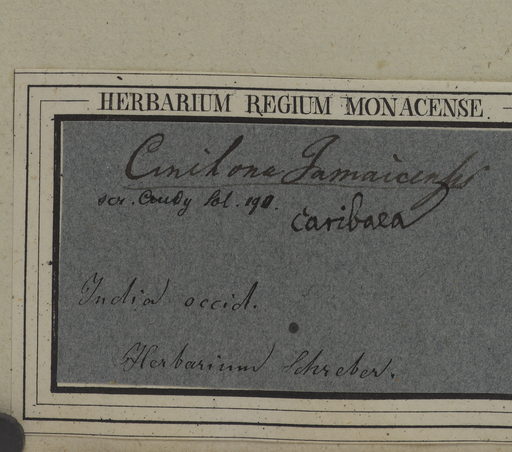 HERBARIUM REGIUM MONACENSE.
Jamaicensis
scr. fol. 190.
caribaea
India occid.
Herbarium Schreber.